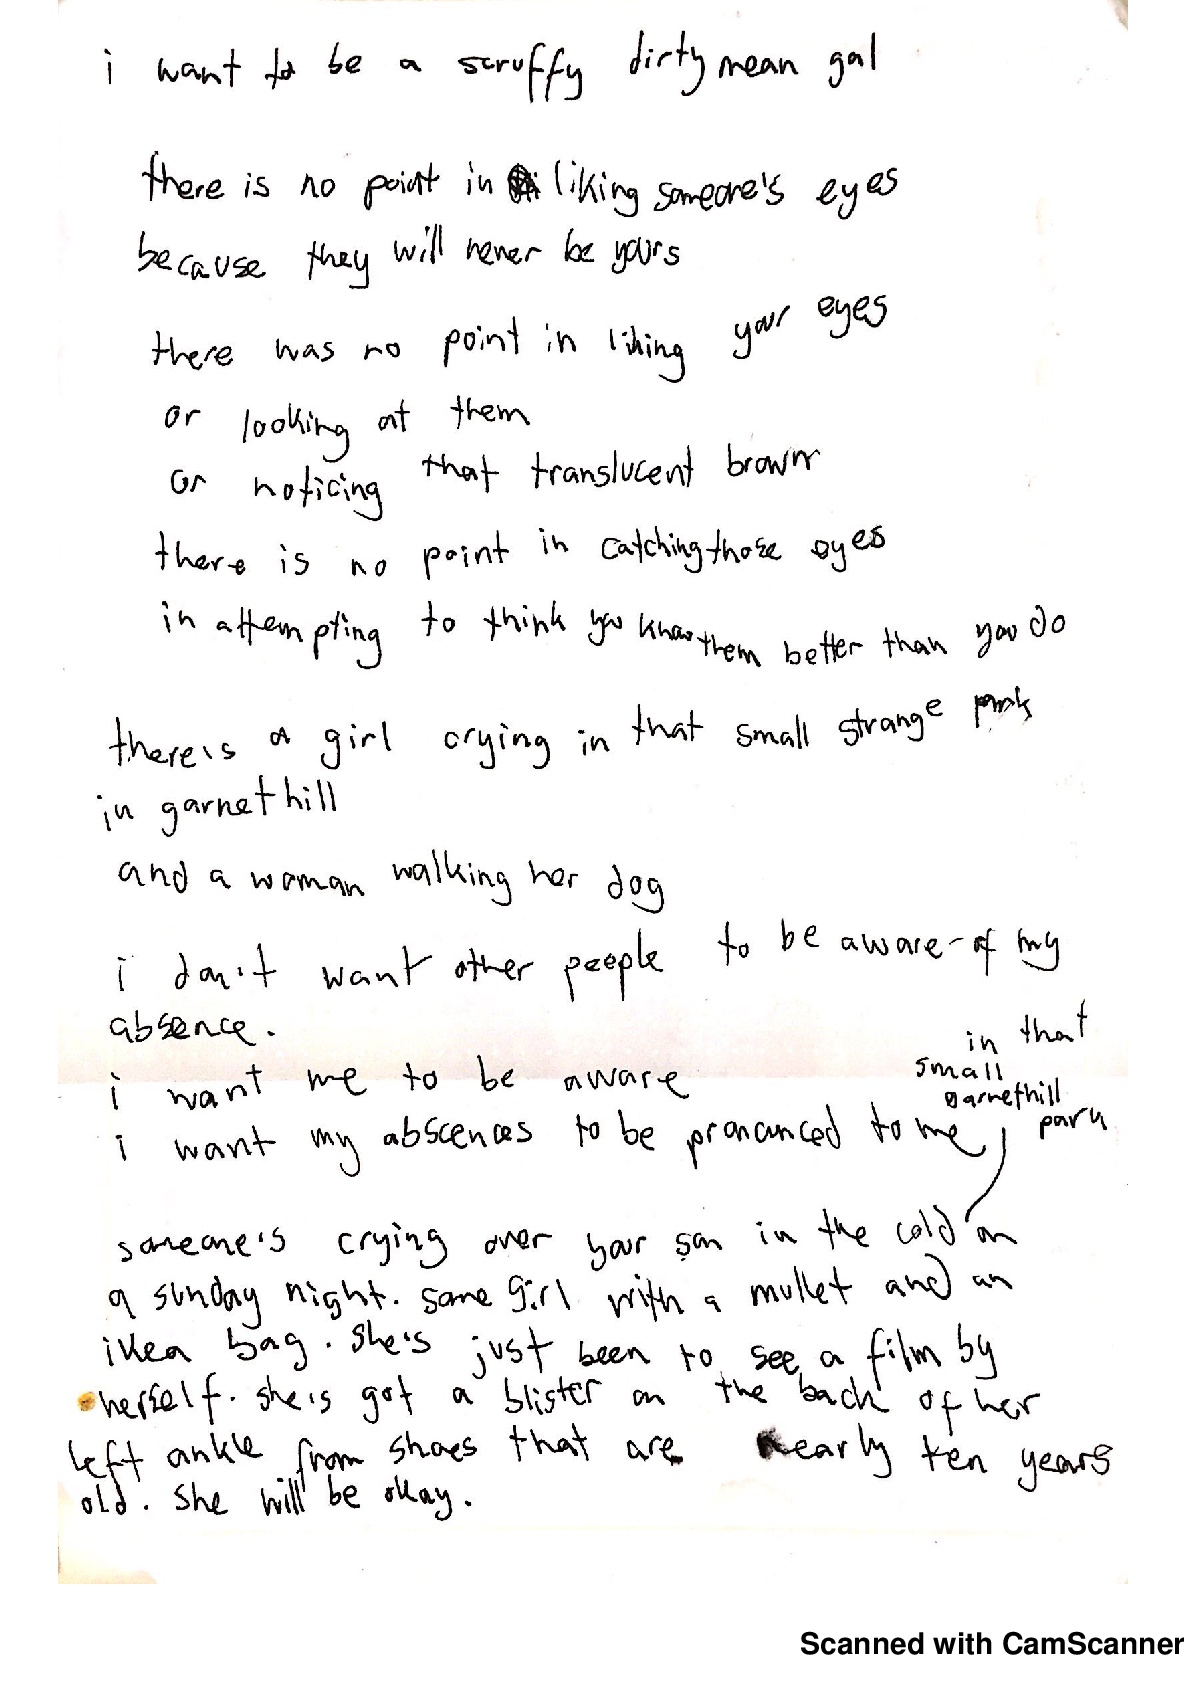 i want to be a scruffy dirty mean gal
there is no point in liking someone's eyes
because they will never be yours
there was no point in liking your eyes
or looking at them
or noticing that translucent brown
there is no point in catching those eyes
in attempting to think you know them better than you do
there is a girl crying in that small strange park
in garnethill
and a woman walking her dog
i don't want other people to be aware of my
absence.
i want me to be aware
i want my abscences to be pronounced to me
in that
small
garnethill
park
someone's crying over your son in the cold on
a sunday night. some girl with a mullet and an
ikea bag. she's just been to see a film by
herself. she's got a blister on the back of her
left ankle from shoes that are nearly ten years
old. she will be okay.
Scanned with CamScanner